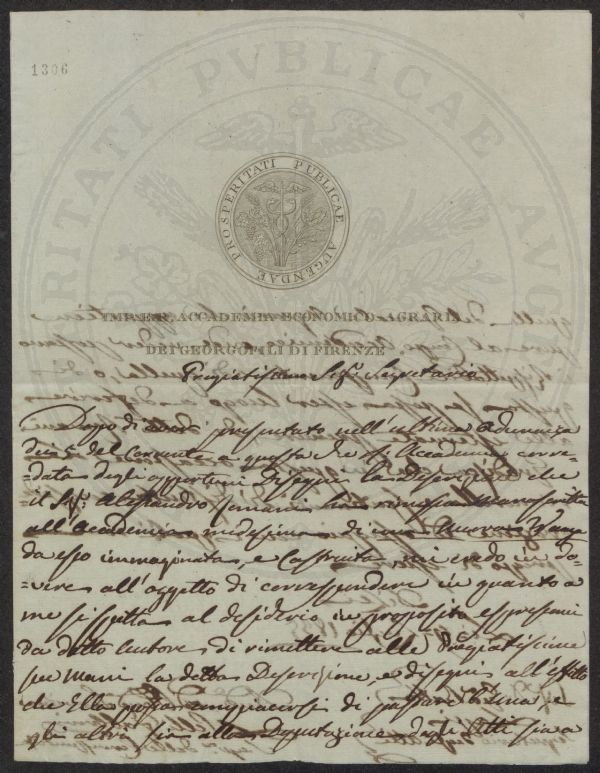 1306
PROSPERITATI PUBLICAE AUGENDAE
IMP. E R. ACCADEMIA ECONOMICO-AGRARIA
DEI GEORGOFILI DI FIRENZE
Pregiatissimo Sig.r Segretario
Dopo di aver presentato nell'ultima Adunanza
del Corrente a questa Accademia corre-
-data degli opportuni Disegni la Descrizione che
il Sig.r Alessandro ha rimessa manoscritta
all'Accademia medesima di una Nuova
da esso immaginata, e Costruita mi credo in do-
-vere all'oggetto di corrispondere in quanto a
me si spetta al desiderio in proposito espressomi
da detto Autore, di rimettere alle Pregiatissime
sue Mani la detta Descrizione, e disegni all'effetto
che Ella possa compiacersi di passare l'una, e
gli altri sia alla Deputazione degli Atti sia a